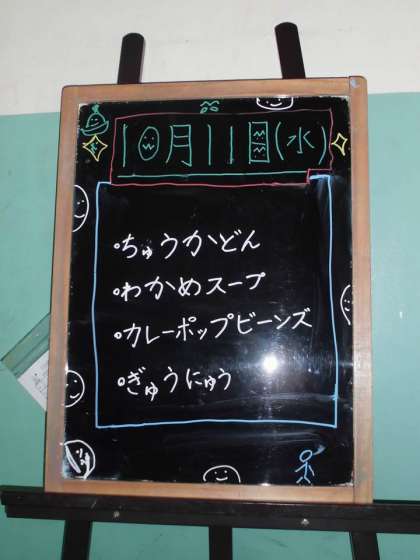 10月11日(水)
・ちゅうかどん
・わかめスープ
・カレーポップビーンズ
・ぎゅうにゅう